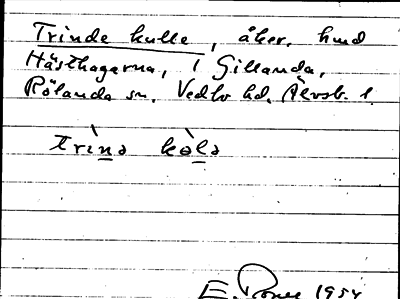 Trinde kulle, åker, hmd
Hästhagarna, i Gillanda,
Rölanda sn. Vedbo hd. Älvsb. l.
trìnə kòlə
E. 1954